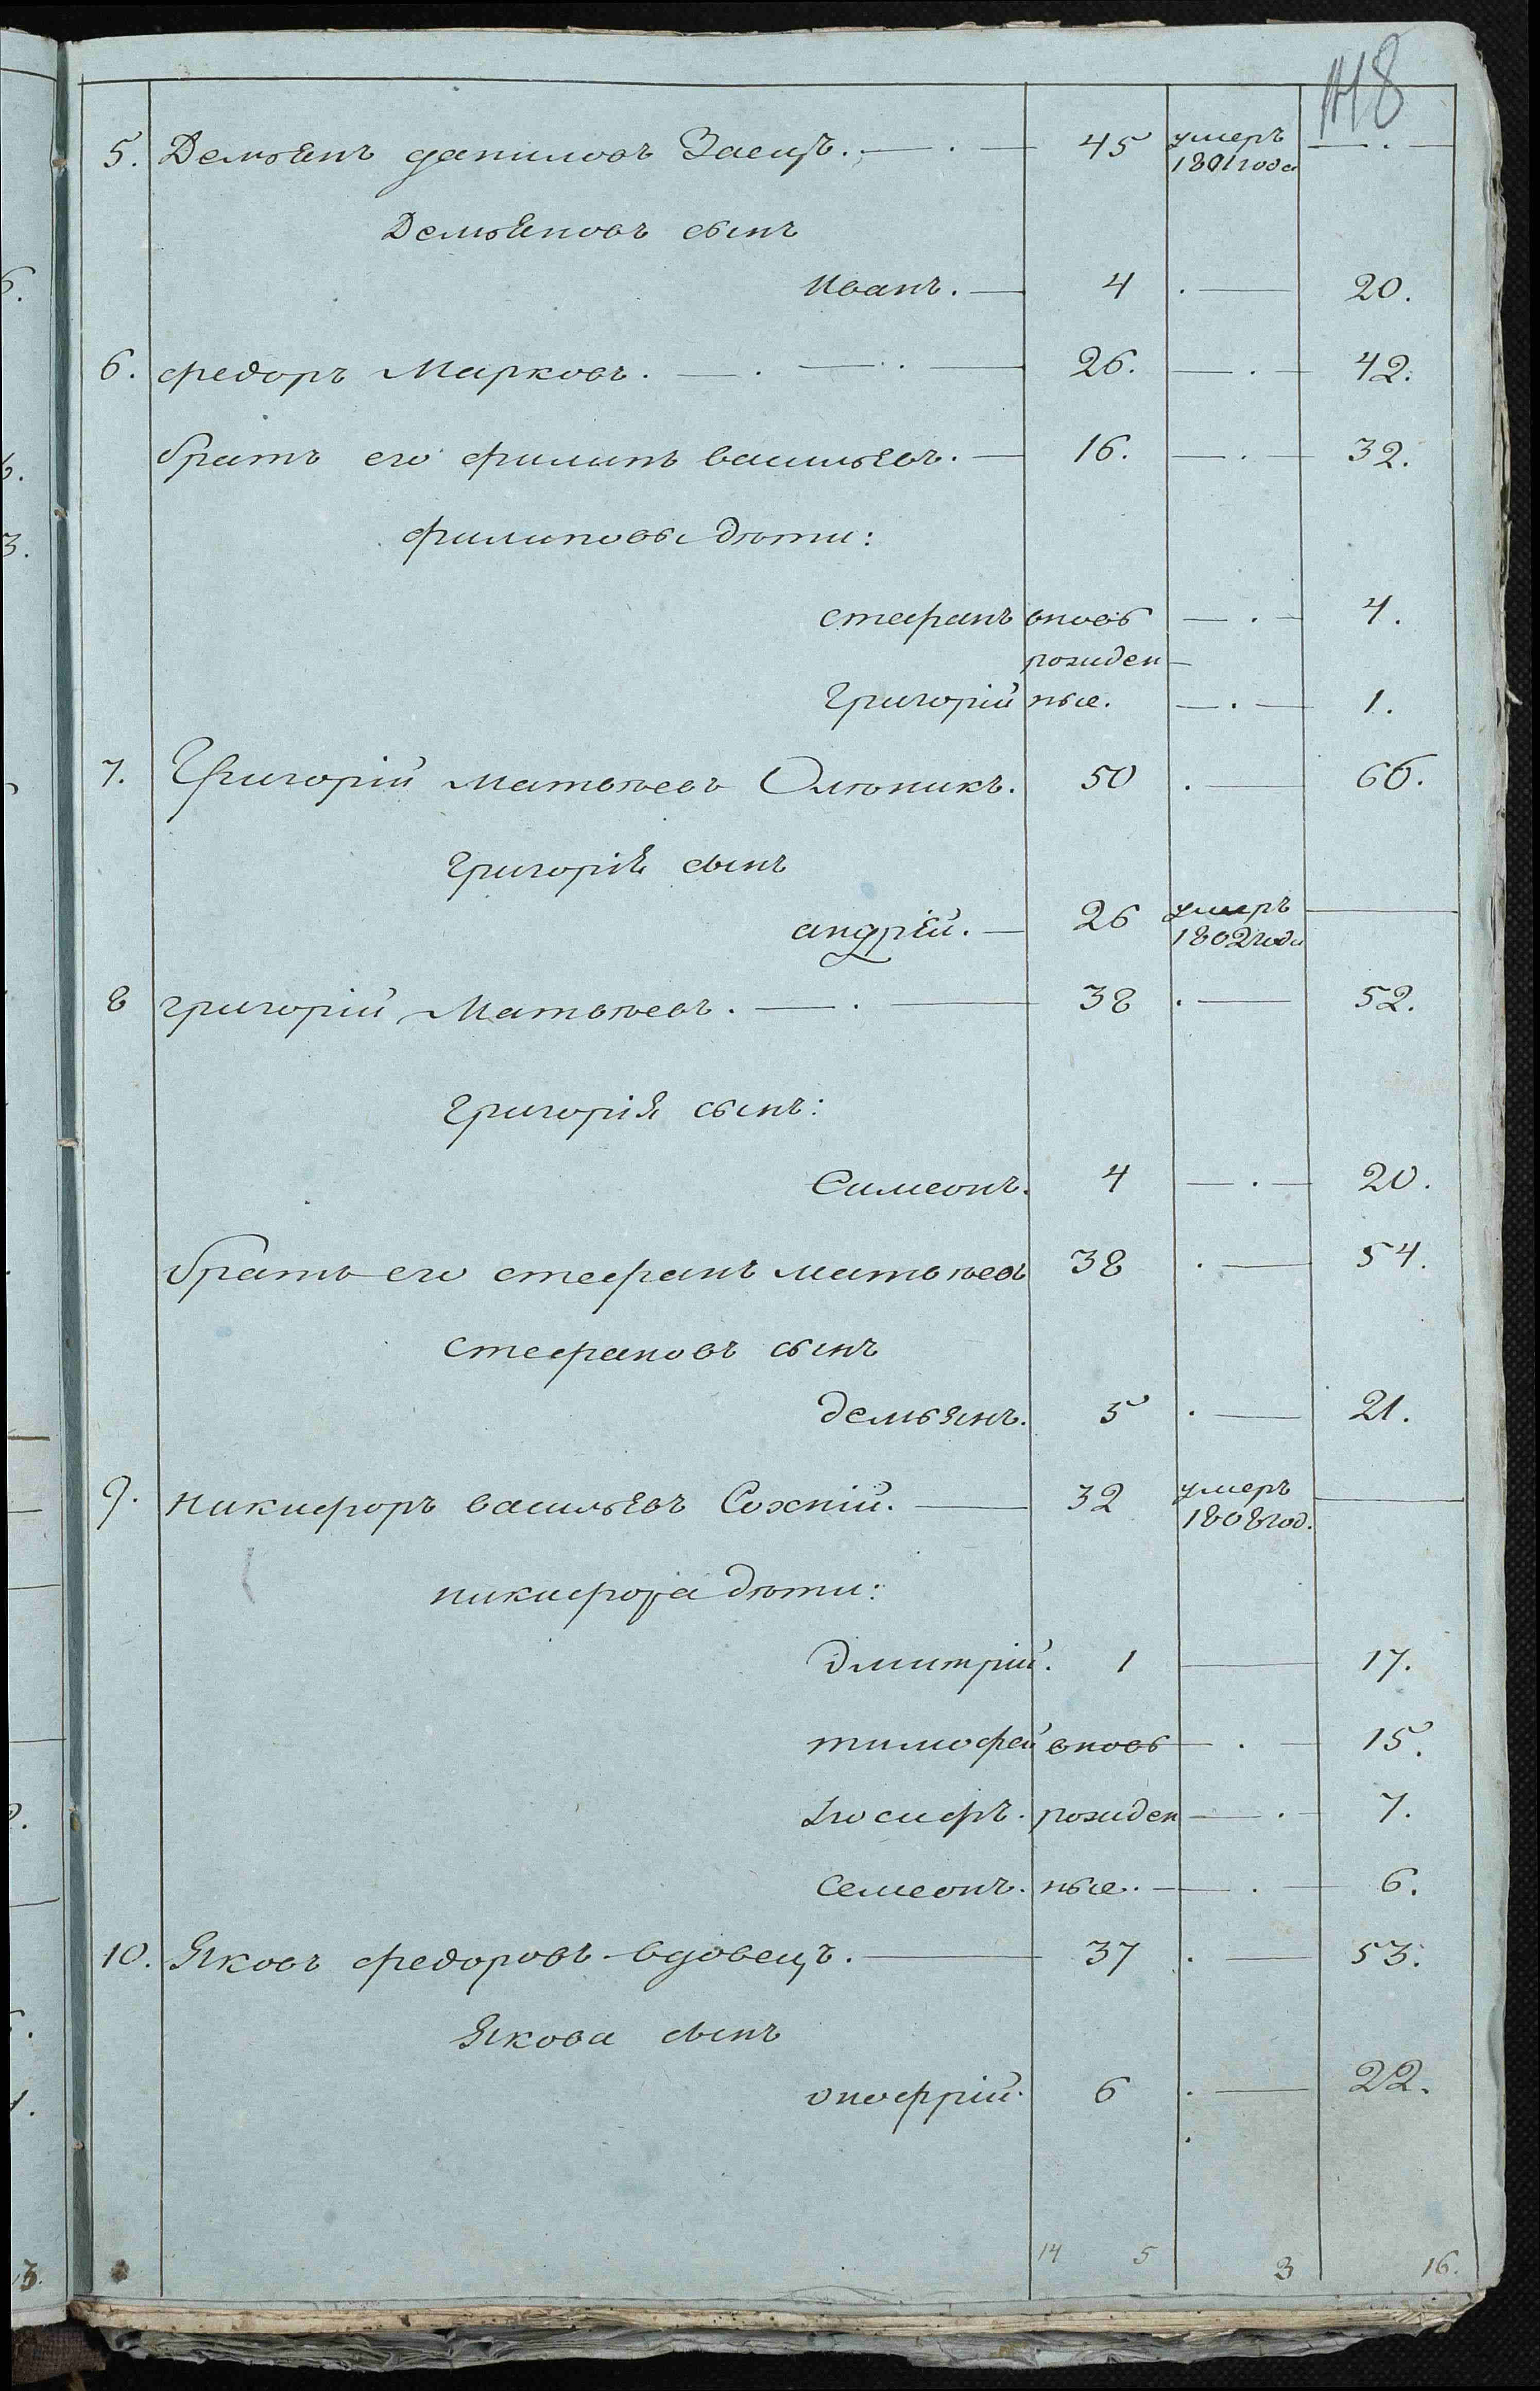 118
5. Демѣянъ данилов Заецъ. 45 умеръ
1801 года
Демѣяновъ сынъ
Иванъ. 4 20.
6. Федоръ Марковъ. 26. 42.
братъ его филипъ васильевъ. 16. 32.
филиповы дѣти:
стефанъ вновь 4.
рожден
Григорій ные. 1.
7. Григорій Матвѣевъ Олѣникъ. 50 66.
Григорія сынъ
андрѣй. 26 умеръ
1802 года
8 григорій Матвѣевъ. 38 52.
Григорія сынъ:
Симеонъ. 4 20.
братъ его стефанъ матвѣев 38 54.
Стефановъ сынъ
демьянъ. 5 21.
9. никифоръ васильевъ Сохній. 32 умеръ
1808 год.
никифора дѣти:
дмитрій. 1 17.
тимофей вновь 15.
Іосифъ. рожден 7.
Семеонъ. ные. 6.
10. Яковъ федоровъ вдовецъ. 37 53.
Якова сынъ
онофрій. 6 22.
14 5 3 16.